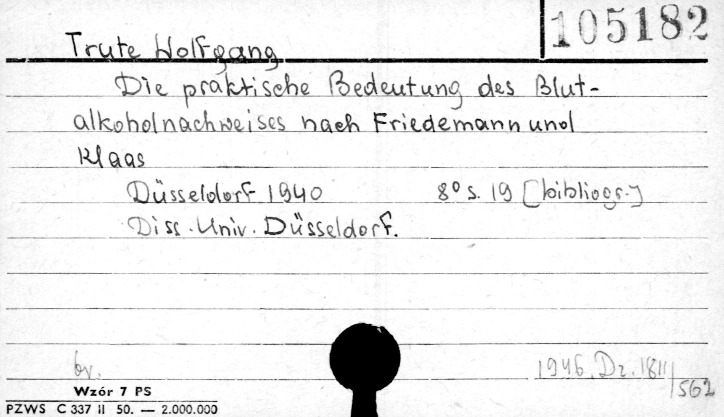 105182
Trute Wolfgang
Die praktische Bedeutung des Blut-
alkoholnachweises nach Friedemann und
Klaas
Düsseldorf 1940 8° s. 19 [bibliogr.]
Diss. Univ. Düsseldorf.
br. 1946. Dz. 1811/562
Wzór 7 PS
PZWS C 337 II 50. — 2.000.000